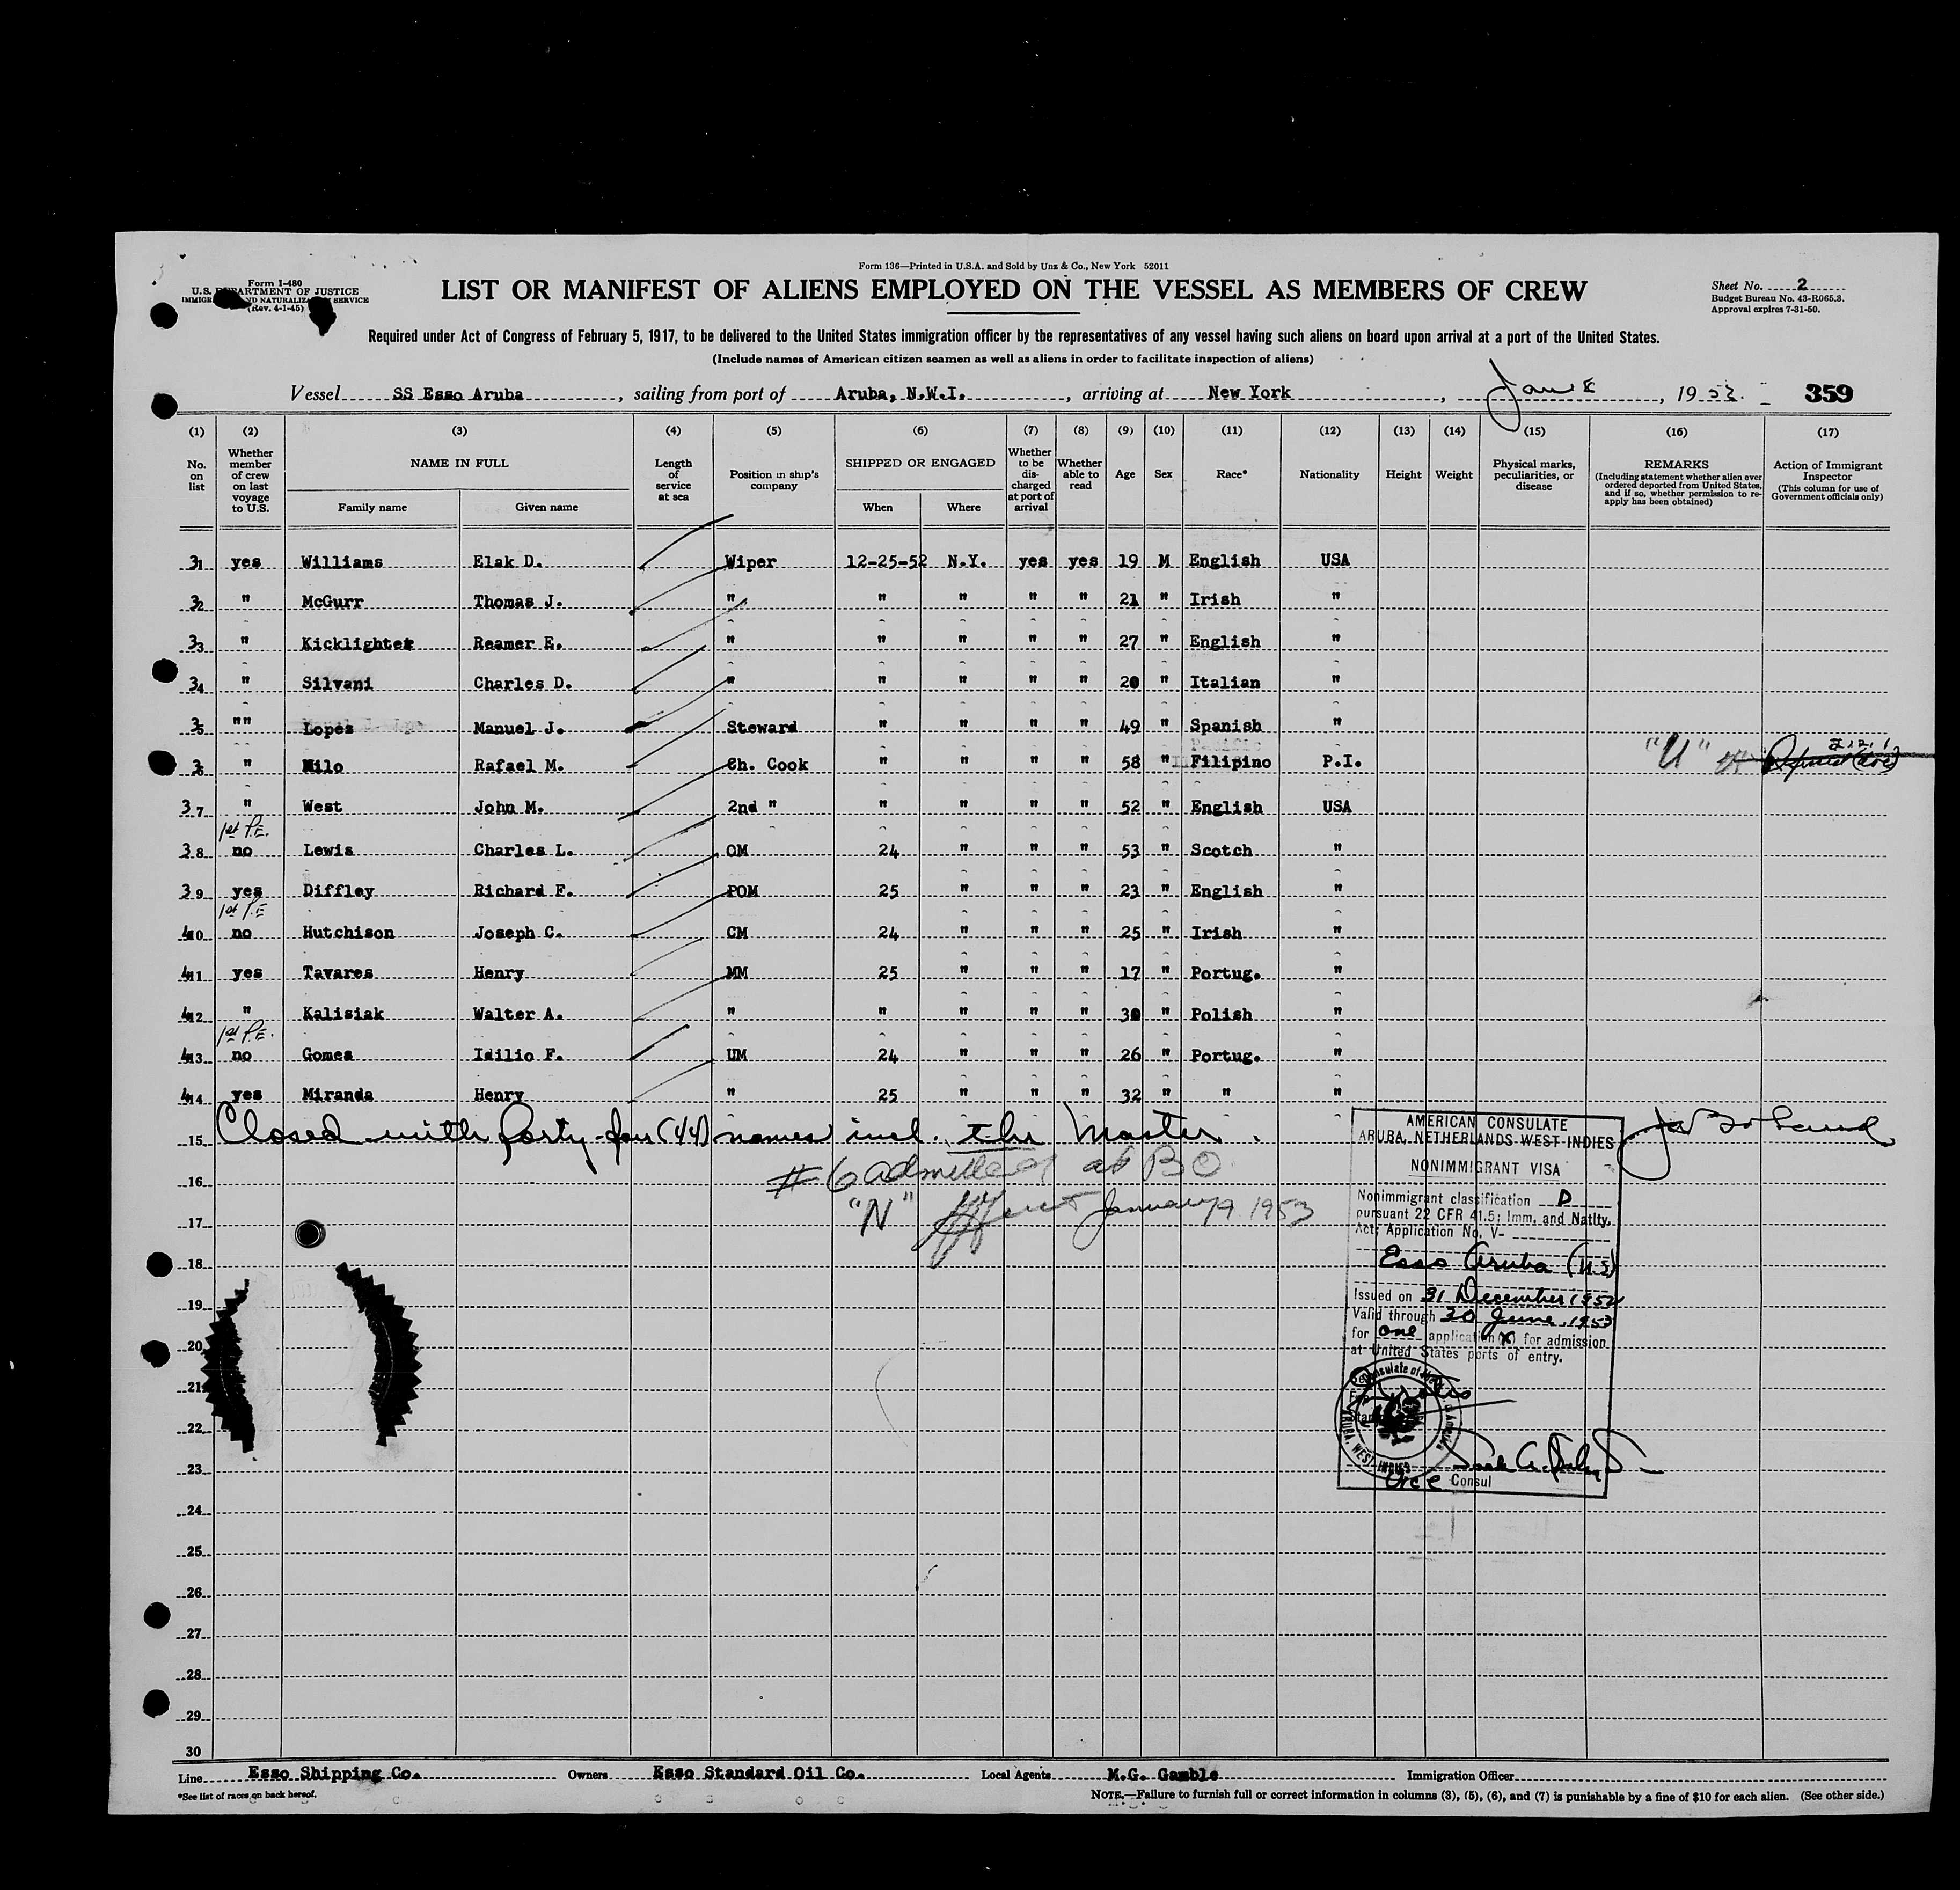 Form 136—Printed in U.S.A. and Sold by Unz & Co., New York 52011
Form I-480
U.S. DEPARTMENT OF JUSTICE
IMMIGRATION AND NATURALIZATION SERVICE
(Rev. 4-1-45)
LIST OR MANIFEST OF ALIENS EMPLOYED ON THE VESSEL AS MEMBERS OF CREW
Sheet No. 2
Budget Bureau No. 43-R065.3.
Approval expires 7-31-50.
Required under Act of Congress of February 5, 1917, to be delivered to the United States immigration officer by the representatives of any vessel having such aliens on board upon arrival at a port of the United States.
(Include names of American citizen seamen as well as aliens in order to facilitate inspection of aliens)
Vessel SS Esso Aruba, sailing from port of Aruba, N.W.I., arriving at New York, Jan 8, 1953. 359
(1) (2) (3) (4) (5) (6) (7) (8) (9) (10) (11) (12) (13) (14) (15) (16) (17)
No. on list
Whether member of crew on last voyage to U.S.
NAME IN FULL
Family name Given name
Length of service at sea
Position in ship's company
SHIPPED OR ENGAGED
When Where
Whether to be discharged at port of arrival
Whether able to read
Age
Sex
Race*
Nationality
Height
Weight
Physical marks, peculiarities, or disease
REMARKS
(Including statement whether alien ever ordered deported from United States, and if so, whether permission to re-apply has been obtained)
Action of Immigrant Inspector
(This column for use of Government officials only)
31 yes Williams Elak D. Wiper 12-25-52 N.Y. yes yes 19 M English USA
32 " McGurr Thomas J. " " " " " 21 " Irish "
33 " Kicklighter Reamer E. " " " " " 27 " English "
34 " Silvani Charles D. " " " " " 20 " Italian "
35 "" Lopes Manuel J. Steward " " " " 49 " Spanish "
36 " Milo Rafael M. Ch. Cook " " " " 58 " Filipino P.I. "U"
37 " West John M. 2nd " " " " " 52 " English USA
1st P.E.
38 no Lewis Charles L. OM 24 " " " 53 " Scotch "
39 yes Diffley Richard F. POM 25 " " " 23 " English "
1st P.E.
410 no Hutchison Joseph C. CM 24 " " " 25 " Irish "
411 yes Tavares Henry MM 25 " " " 17 " Portug. "
412 " Kalisiak Walter A. " " " " " 30 " Polish "
1st P.E.
413 no Gomes Idilio F. UM 24 " " " 26 " Portug. "
414 yes Miranda Henry " 25 " " " 32 " " "
15 Closed with forty-four (44) names incl. the Master.
16 #6 admitted at BO
"N" January 9 1953
17
18
19
20
21
22
23
24
25
26
27
28
29
30
AMERICAN CONSULATE
ARUBA, NETHERLANDS WEST INDIES
NONIMMIGRANT VISA
Nonimmigrant classification D
pursuant 22 CFR 41.5; Imm. and Natlty.
Act; Application No. V-
Esso Aruba (U.S)
Issued on 31 December 1952
Valid through 30 June, 1953
for one application(x) for admission
at United States ports of entry.
Vice Consul
Line Esso Shipping Co. Owners Esso Standard Oil Co. Local Agents M.G. Gamble Immigration Officer
*See list of races on back hereof.
NOTE.—Failure to furnish full or correct information in columns (3), (5), (6), and (7) is punishable by a fine of $10 for each alien. (See other side.)